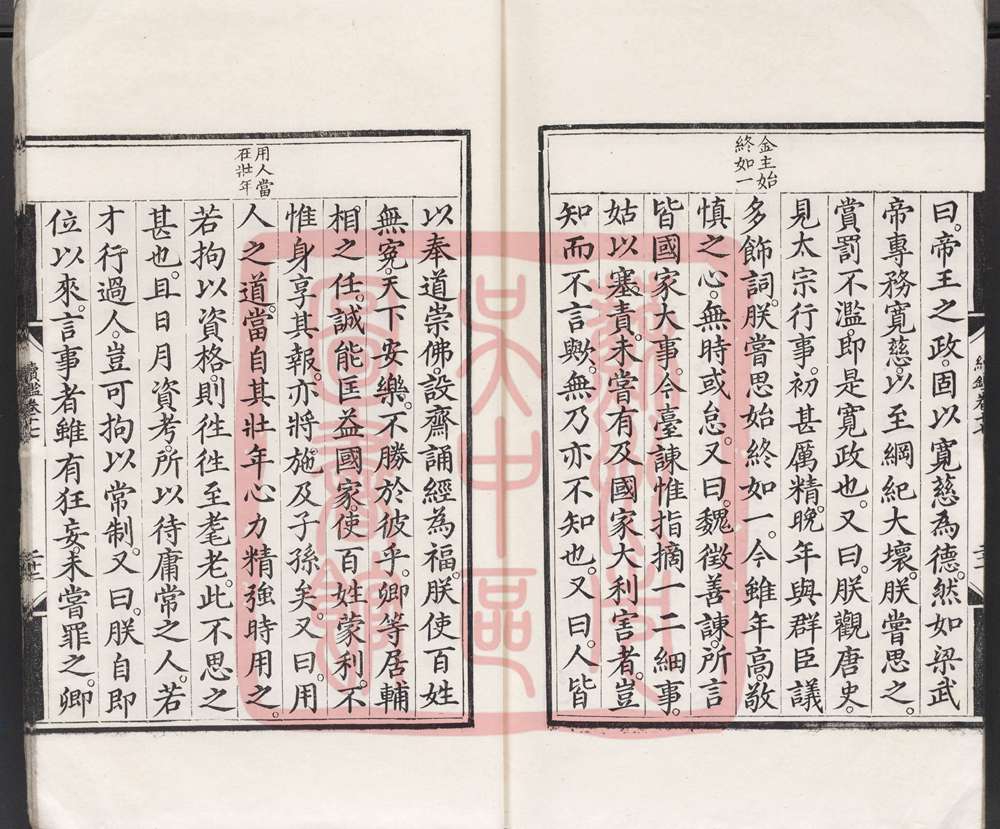 金主始
終如一
曰。帝王之政。固以寬慈為德。然如梁武
帝專務寬慈。以至綱紀大壞。朕嘗思之。
賞罰不濫。即是寬政也。又曰。朕觀唐史。
見太宗行事。初甚厲精。晚年與群臣議
多飾詞。朕嘗思始終如一。今雖年高。敬
慎之心。無時或怠。又曰。魏徵善諫。所言
皆國家大事。今臺諫惟指摘一二細事。
姑以塞責。未嘗有及國家大利害者。豈
知而不言歟。無乃亦不知也。又曰。人皆
用人當
在壯年
以奉道崇佛。設齋誦經為福。朕使百姓
無冤。天下安樂。不勝於彼乎。卿等居輔
相之任。誠能匡益國家。使百姓蒙利。不
惟身享其報。亦將施及子孫矣。又曰。用
人之道。當自其壯年心力精強時用之。
若拘以資格。則往往至耄老。此不思之
甚也。且日月資考。所以待庸常之人。若
才行過人。豈可拘以常制。又曰。朕自即
位以來。言事者雖有狂妄。未嘗罪之。卿
續鑑卷十七
蘇州市
吳中區
圖書館